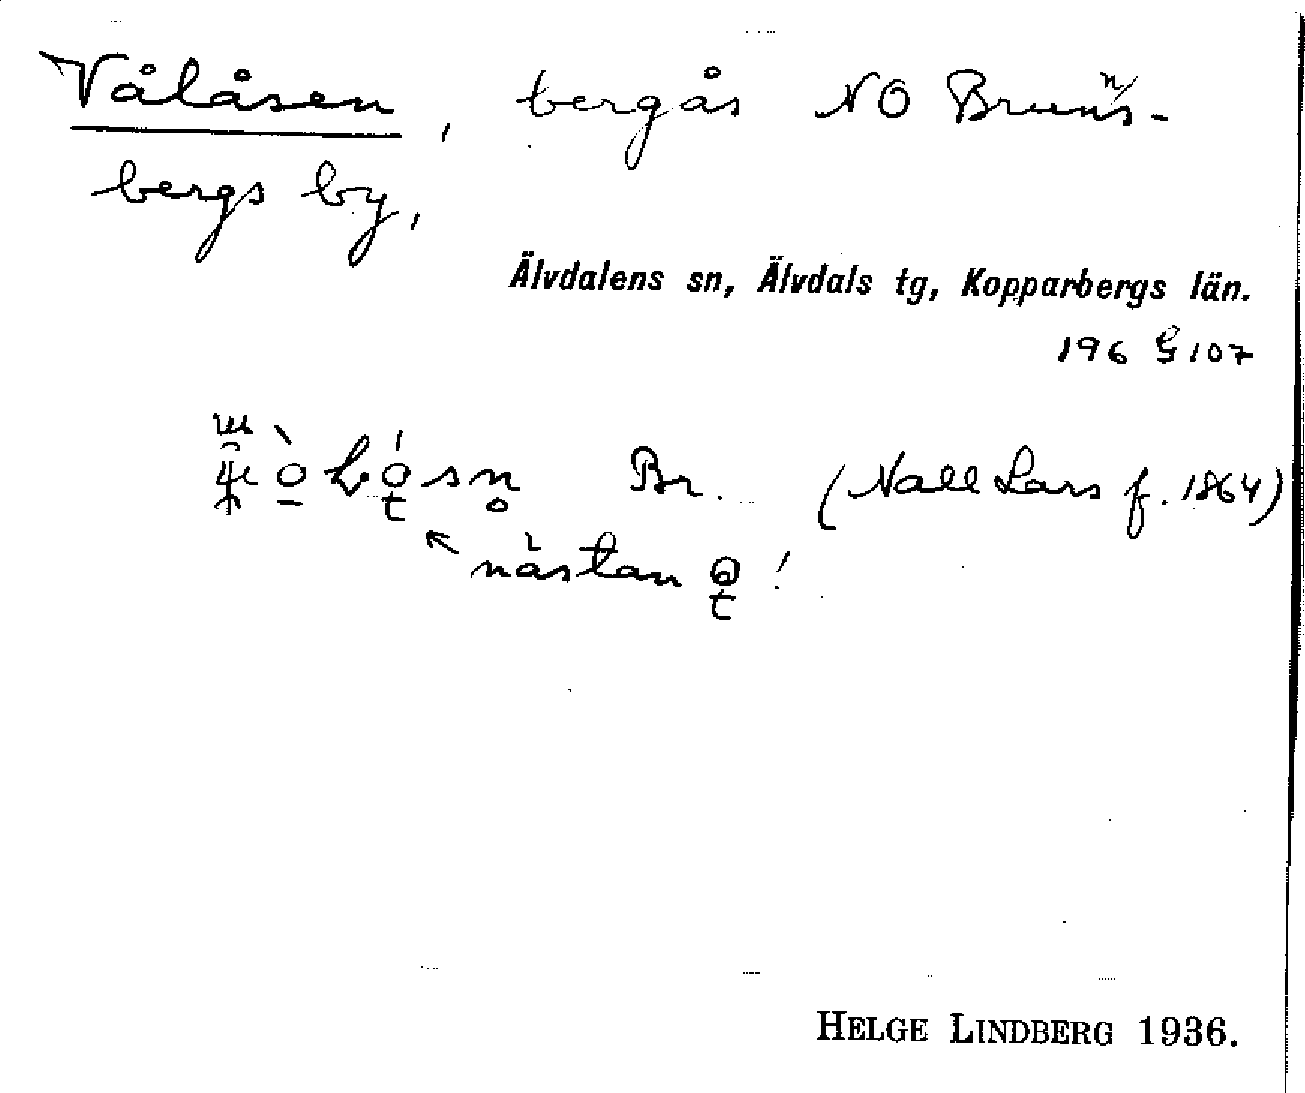 Vålåsen, bergås NO Brunns-
bergs by,
Älvdalens sn, Älvdals tg, Kopparbergs län.
196 § 107
Br. (Nall Lars f. 1864)
nästan !
HELGE LINDBERG 1936.